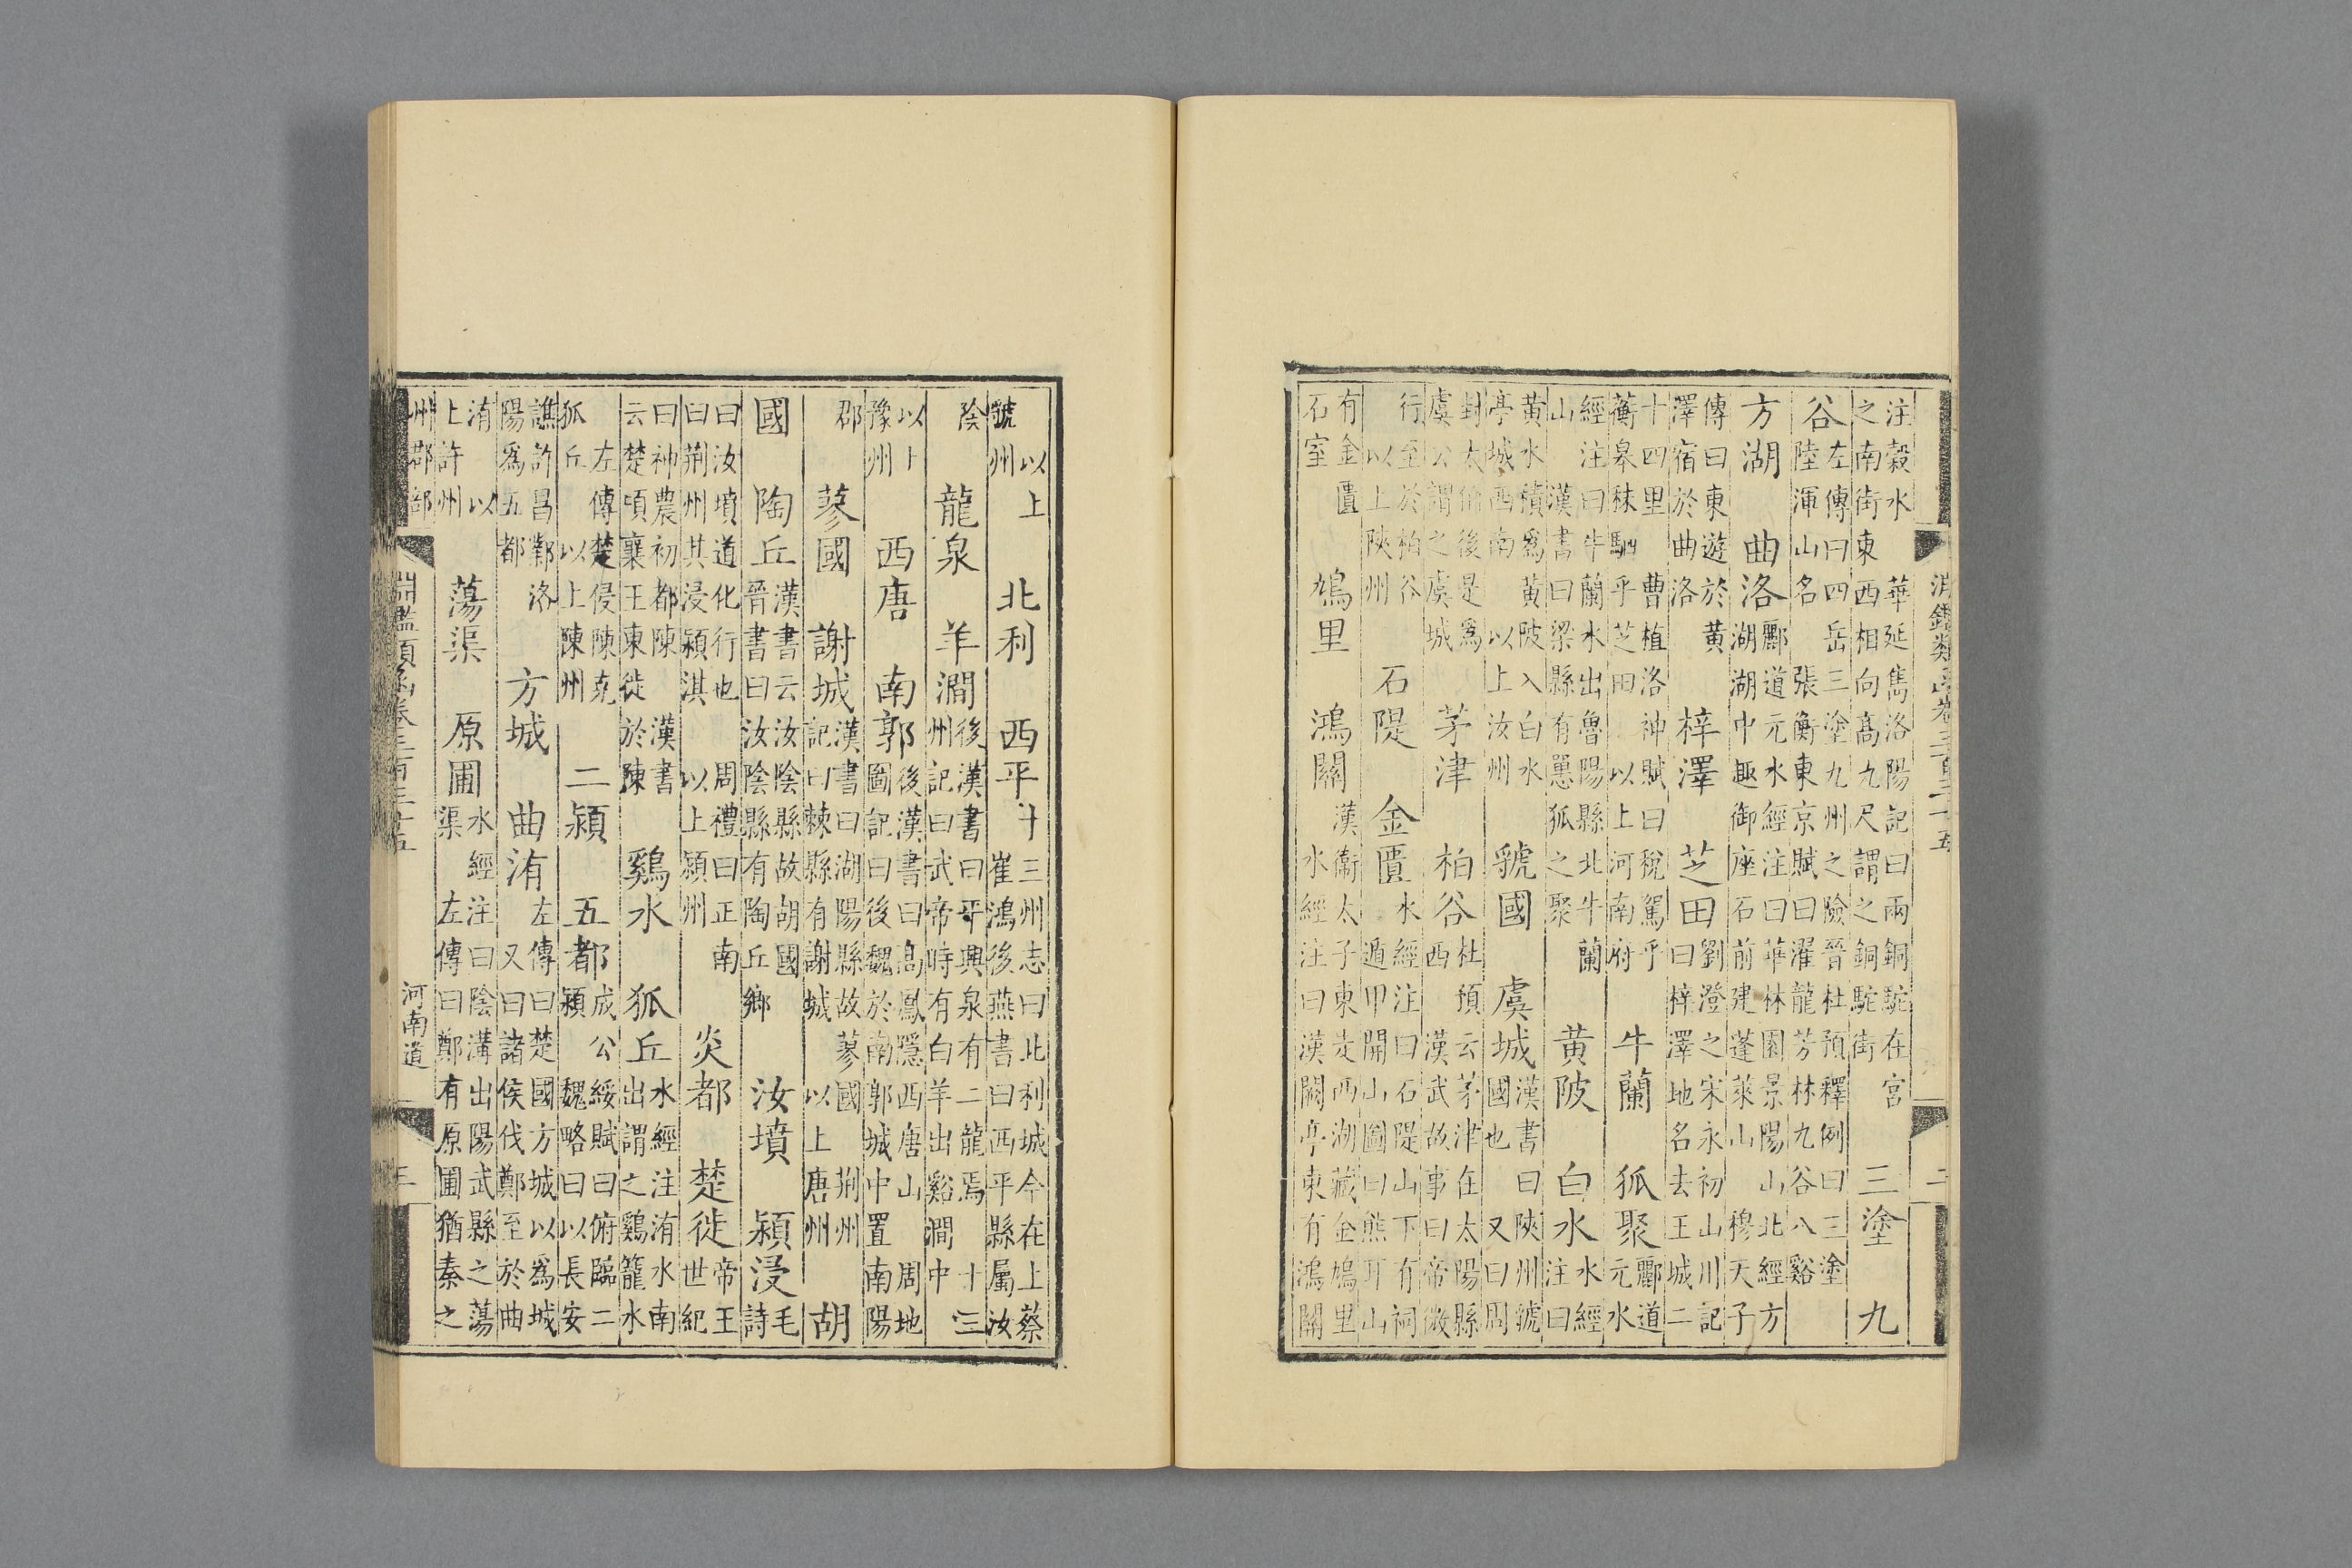 淵鑑類函卷三百三十五 二
注穀水 華延儁洛陽記曰兩銅駝在宮
之南街東西相向高九尺謂之銅駝街
三塗 九
谷
左傳曰四岳三塗九州之險晉杜預釋例曰三塗
陸渾山名 張衡東京賦曰濯龍芳林九谷八谿
方湖 曲洛
酈道元水經注曰華林園景陽山北經方
湖湖中趣御座石前建蓬萊山 穆天子
傳曰東遊於黃
澤宿於曲洛
梓澤 芝田
劉澄之宋永初山川記
曰梓澤地名去王城二
十四里 曹植洛神賦曰稅駕乎
蘅皋秣駟乎芝田 以上河南府
牛蘭 狐聚
酈道
元水
經注曰牛蘭水出魯陽縣北牛蘭
山 漢書曰梁縣有㒹狐之聚
黃陂 白水
水經
注曰
黃水積為黃陂入白水
亭城西南 以上汝州
虢國 虞城
漢書曰陜州虢
國也 又曰周
封太伯後是為
虞公謂之虞城
茅津 柏谷
杜預云茅津在太陽縣
西 漢武故事曰帝微
行至於柏谷
以上陜州
石隄 金匱
水經注曰石隄山下有祠
遁甲開山圖曰熊耳山
有金匱
石室
鳩里 鴻關
漢衛太子東走西湖藏金鳩里
水經注曰漢關亭東有鴻關
以上
虢州
北利 西平
十三州志曰北利城今在上蔡
崔鴻後燕書曰西平縣屬汝
陰
龍泉 羊澗
後漢書曰平輿泉有二龍焉 十三
州記曰武帝時有白羊出谿澗中
以上
豫州
西唐 南郭
後漢書曰高鳳隱西唐山 周地
圖記曰後魏於南郭城中置南陽
郡
蓼國 謝城
漢書曰湖陽縣故蓼國 荆州
記曰棘縣有謝城 以上唐州
胡
國 陶丘
漢書云汝陰縣故胡國
晉書曰汝陰縣有陶丘鄉
汝墳 潁浸
毛
詩
曰汝墳道化行也 周禮曰正南
曰荆州其浸潁淇 以上潁州
炎都 楚徙
帝王
世紀
曰神農初都陳 漢書
云楚頃襄王東徙於陳
鷄水 狐丘
水經注洧水南
出謂之鷄籠水
左傳楚侵陳克
狐丘 以上陳州
二潁 五都
成公綏賦曰俯臨二
潁 魏略曰以長安
譙許昌鄴洛
陽為五都
方城 曲洧
左傳曰楚國方城以為城
又曰諸侯伐鄭至於曲
洧 以
上許州
蕩渠 原圃
水經注曰陰溝出陽武縣之蕩
渠 左傳曰鄭有原圃猶秦之
州郡部
河南道
淵鑑類函卷三百三十五 三